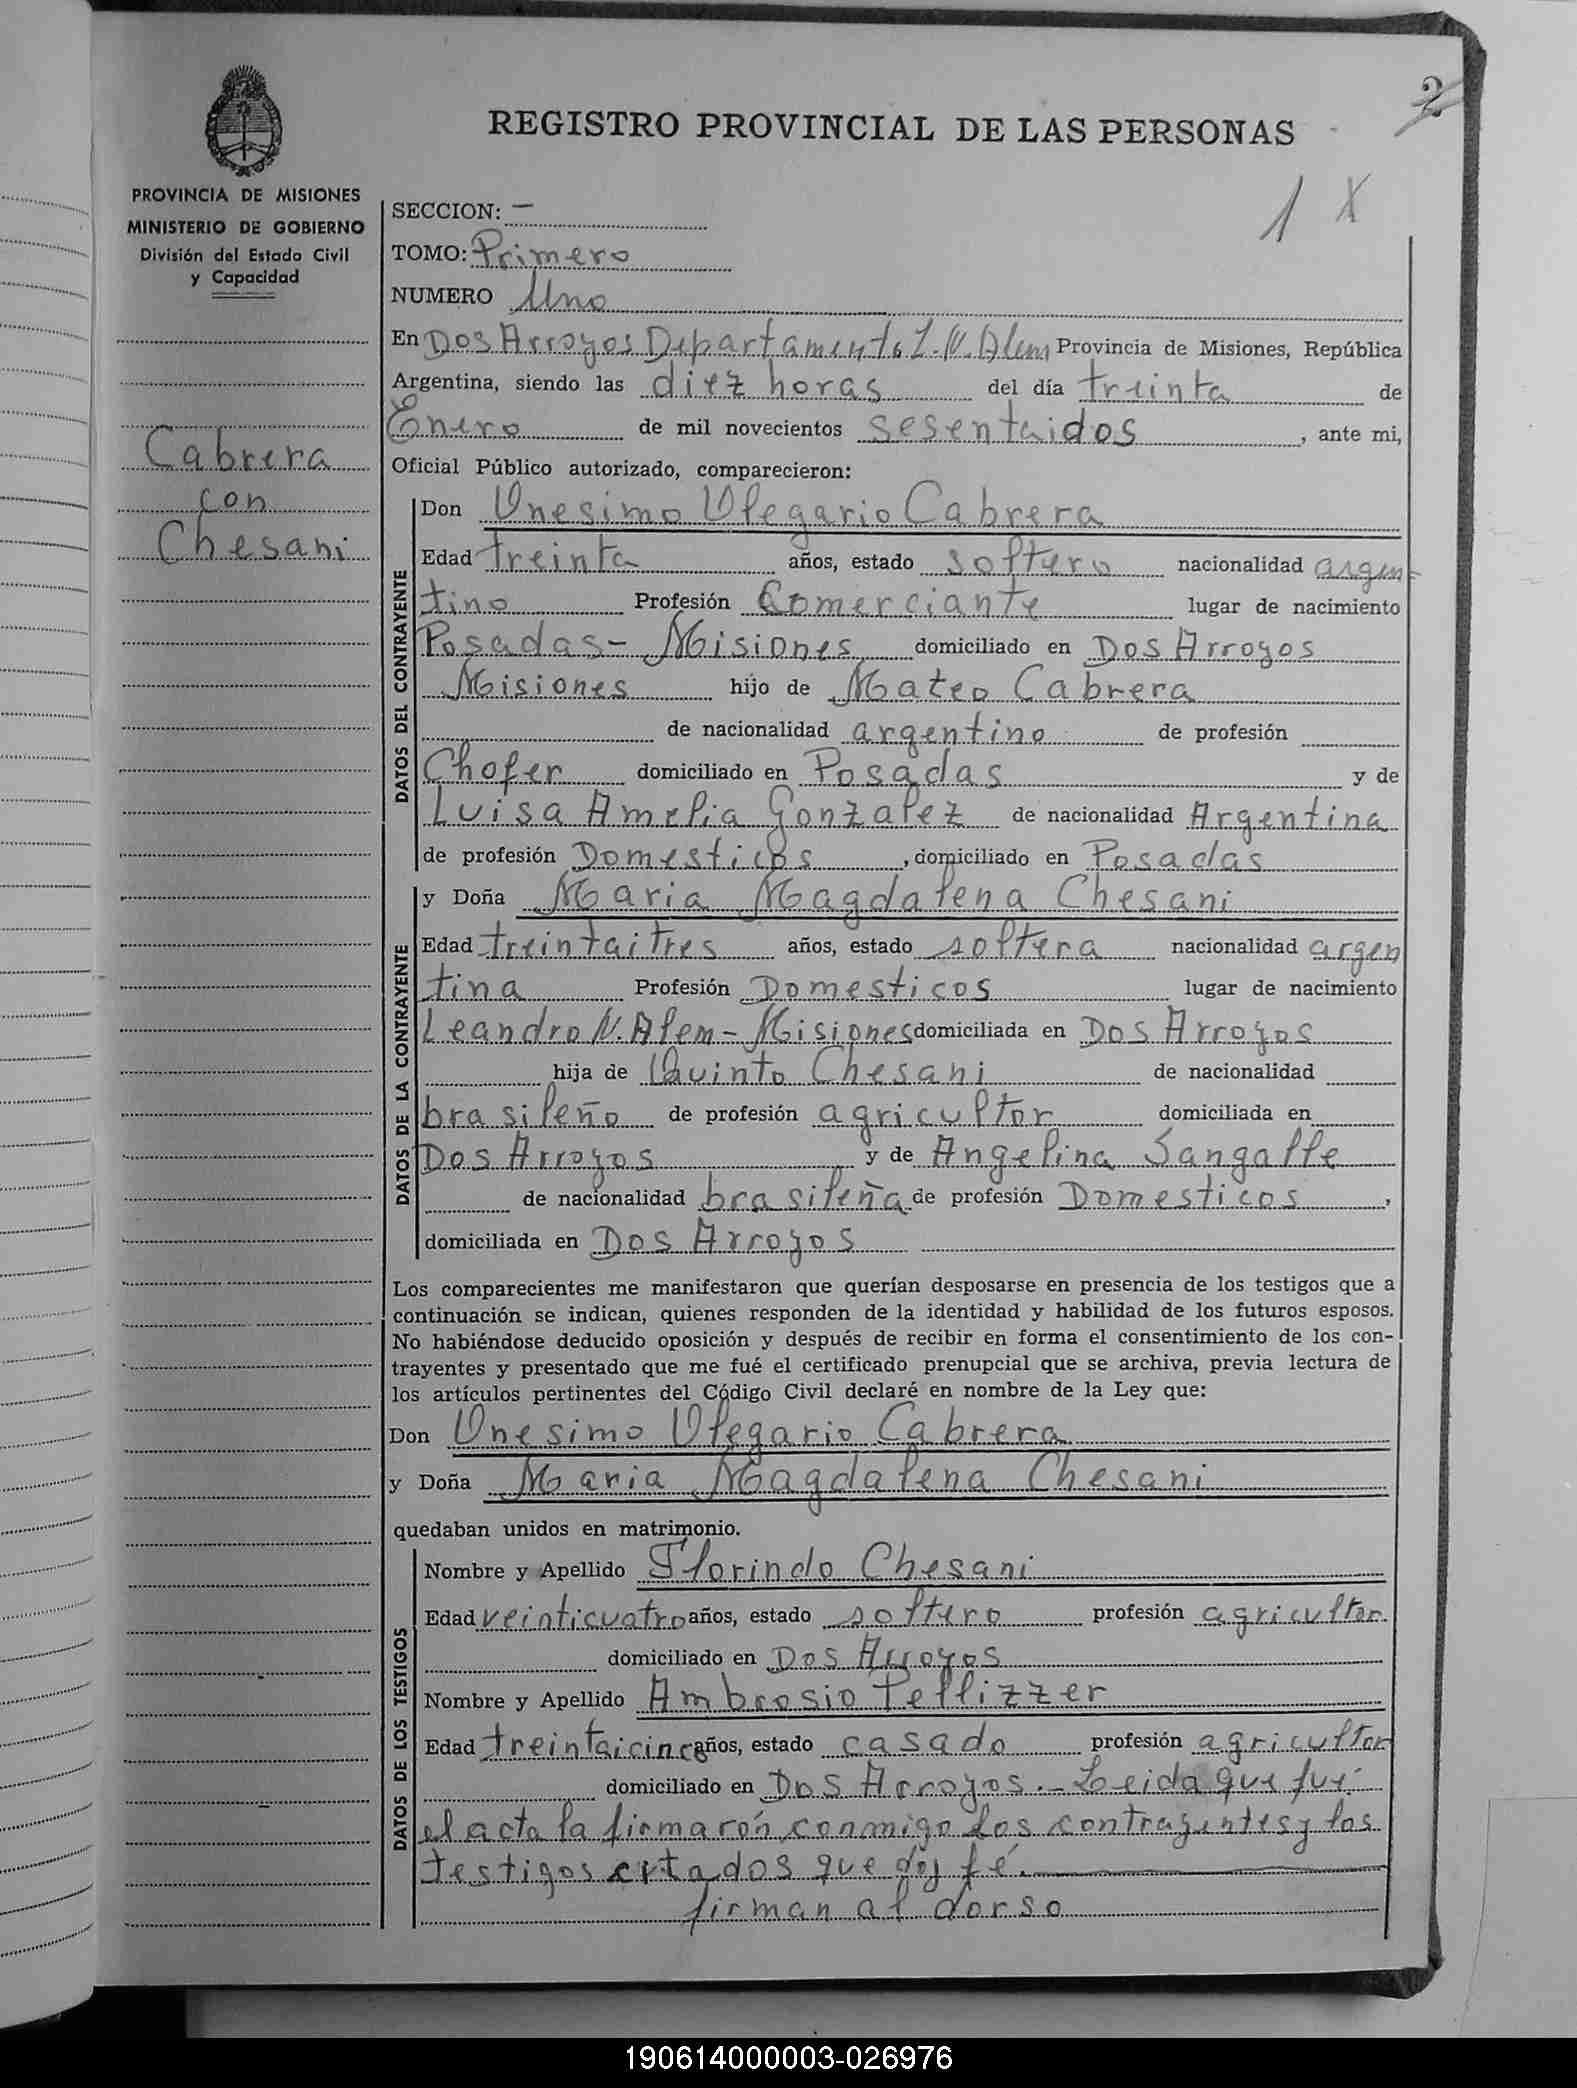 2
REGISTRO PROVINCIAL DE LAS PERSONAS
1 X
PROVINCIA DE MISIONES
MINISTERIO DE GOBIERNO
División del Estado Civil
y Capacidad
Cabrera
con
Chesani
SECCION: —
TOMO: Primero
NUMERO Uno
En Dos Arroyos Departamento L. N. Alem Provincia de Misiones, República
Argentina, siendo las diez horas del día treinta de
Enero de mil novecientos sesentaidos, ante mi,
Oficial Público autorizado, comparecieron:
DATOS DEL CONTRAYENTE
Don Onesimo Olegario Cabrera
Edad treinta años, estado soltero nacionalidad argen-
tino Profesión Comerciante lugar de nacimiento
Posadas - Misiones domiciliado en Dos Arroyos
Misiones hijo de Mateo Cabrera
de nacionalidad argentino de profesión
Chofer domiciliado en Posadas y de
Luisa Amelia Gonzalez de nacionalidad Argentina
de profesión Domesticos, domiciliado en Posadas
DATOS DE LA CONTRAYENTE
y Doña Maria Magdalena Chesani
Edad treintaitres años, estado soltera nacionalidad argen
tina Profesión Domesticos lugar de nacimiento
Leandro N. Alem - Misiones domiciliada en Dos Arroyos
hija de Quinto Chesani de nacionalidad
brasileño de profesión agricultor domiciliada en
Dos Arroyos y de Angelina Sangalle
de nacionalidad brasileña de profesión Domesticos,
domiciliada en Dos Arroyos
Los comparecientes me manifestaron que querían desposarse en presencia de los testigos que a
continuación se indican, quienes responden de la identidad y habilidad de los futuros esposos.
No habiéndose deducido oposición y después de recibir en forma el consentimiento de los con-
trayentes y presentado que me fué el certificado prenupcial que se archiva, previa lectura de
los artículos pertinentes del Código Civil declaré en nombre de la Ley que:
Don Onesimo Olegario Cabrera
y Doña Maria Magdalena Chesani
quedaban unidos en matrimonio.
DATOS DE LOS TESTIGOS
Nombre y Apellido Florindo Chesani
Edad veinticuatro años, estado soltero profesión agricultor
domiciliado en Dos Arroyos
Nombre y Apellido Ambrosio Pellizzer
Edad treintaicinco años, estado casado profesión agricultor
domiciliado en Dos Arroyos.- Leida que fué
el acta la firmarón conmigo los contrayentes y los
testigos citados que doy fé.
firman al dorso
190614000003-026976